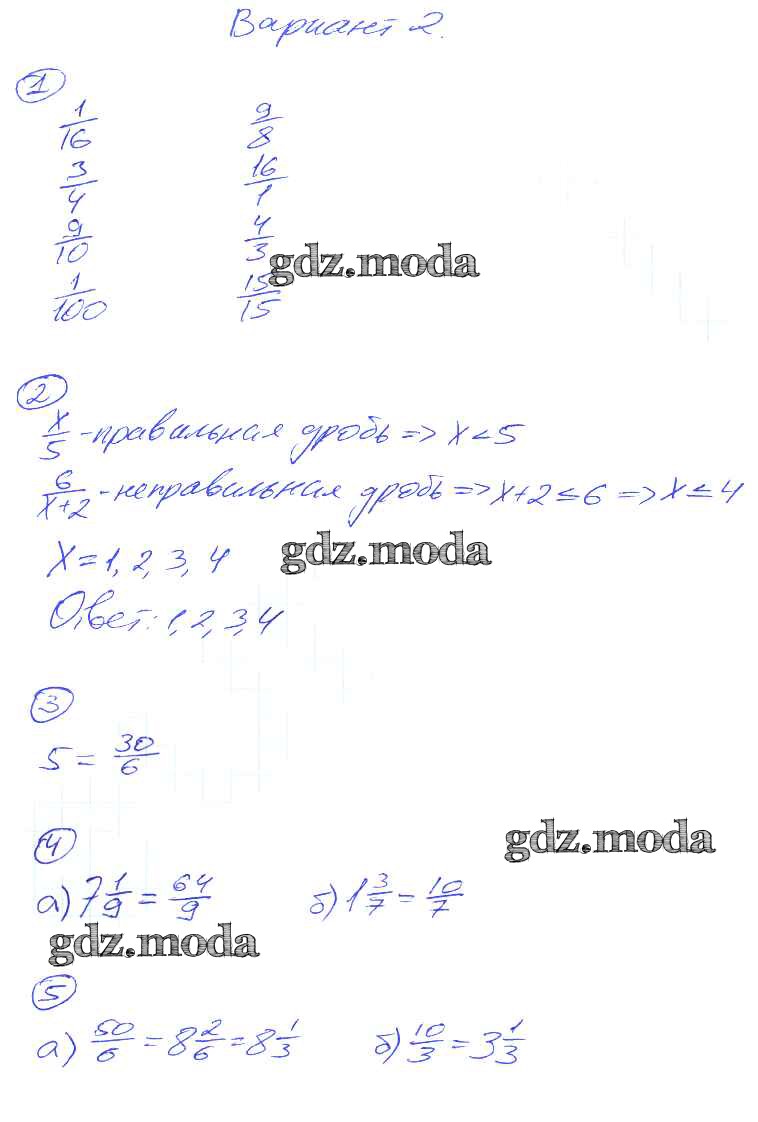 Вариант 2.
1
1/16 9/8
3/4 16/1
9/10 4/3
gdz.moda
1/100 15/15
2
x/5 - правильная дробь => x < 5
6/x+2 - неправильная дробь => x+2 ≤ 6 => x ≤ 4
gdz.moda
X = 1, 2, 3, 4
Ответ: 1, 2, 3, 4
3
5 = 30/6
gdz.moda
4
а) 7 1/9 = 64/9 б) 1 3/7 = 10/7
gdz.moda
5
а) 50/6 = 8 2/6 = 8 1/3 б) 10/3 = 3 1/3